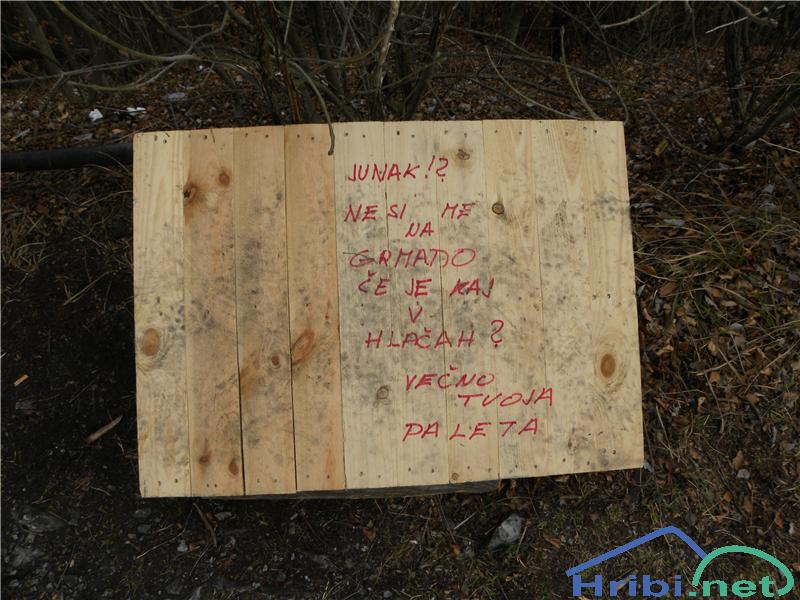 JUNAK!?
NESI ME
NA
GRMADO
ČE JE KAJ
V
HLAČAH?
VEČNO
TVOJA
PALETA
Hribi.net